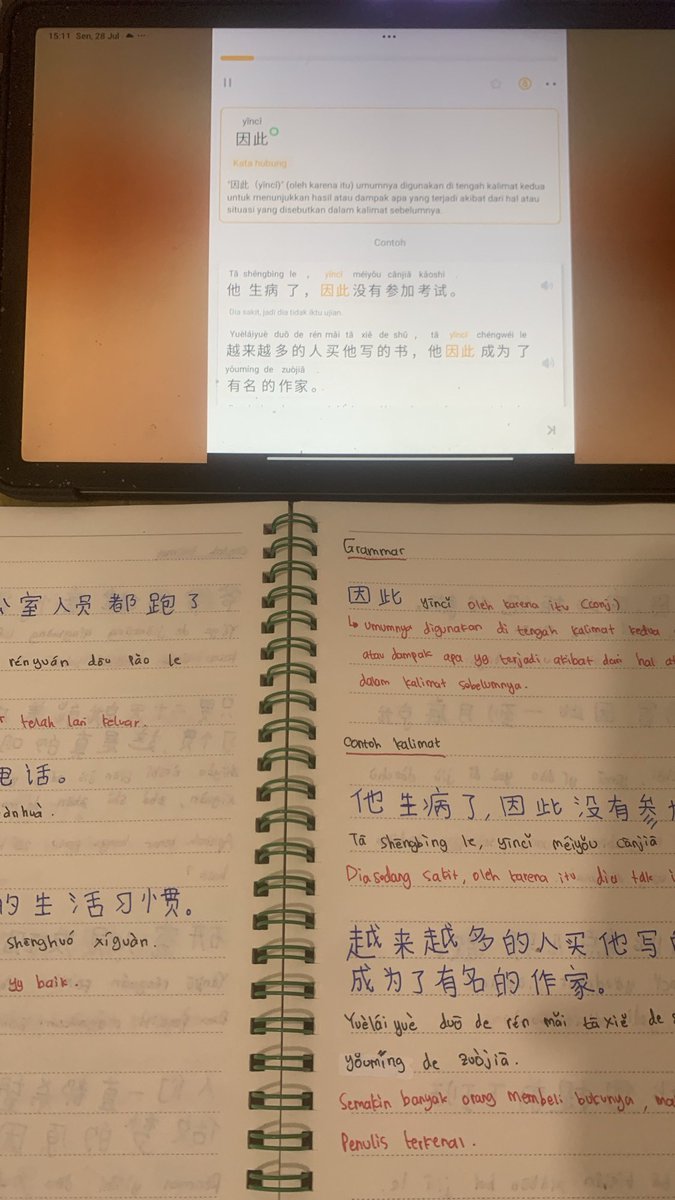 15:11 Sen, 28 Jul
yīncǐ
因此
Kata hubung
"因此 (yīncǐ)" (oleh karena itu) umumnya digunakan di tengah kalimat kedua
untuk menunjukkan hasil atau dampak apa yang terjadi akibat dari hal atau
situasi yang disebutkan dalam kalimat sebelumnya.
Contoh
Tā shēngbìng le , yīncǐ méiyǒu cānjiā kǎoshì .
他 生病 了，因此 没有 参加 考试。
Dia sakit, jadi dia tidak ikut ujian.
Yuèláiyuè duō de rén mǎi tā xiě de shū , tā yīncǐ chéngwéi le
越来越 多 的 人 买 他 写 的 书，他 因此 成为 了
yǒumíng de zuòjiā .
有名 的 作家。
公室人员都跑了
rényuán dōu pǎo le
telah lari keluar.
电话。
的生活习惯。
shēnghuó xíguàn.
yg baik.
Grammar
因此 yīncǐ oleh karena itu (conj)
↳ umumnya digunakan di tengah kalimat kedua
atau dampak apa yg terjadi akibat dari hal
dalam kalimat sebelumnya.
Contoh kalimat
他生病了,因此没有参
Tā shēngbìng le, yīncǐ méiyǒu cānjiā
Dia sedang sakit, oleh karena itu dia tdk
越来越多的人买他写的
成为了有名的作家。
Yuèlái yuè duō de rén mǎi tā xiě de
yǒumíng de zuòjiā.
Semakin banyak orang membeli bukunya,
Penulis terkenal.